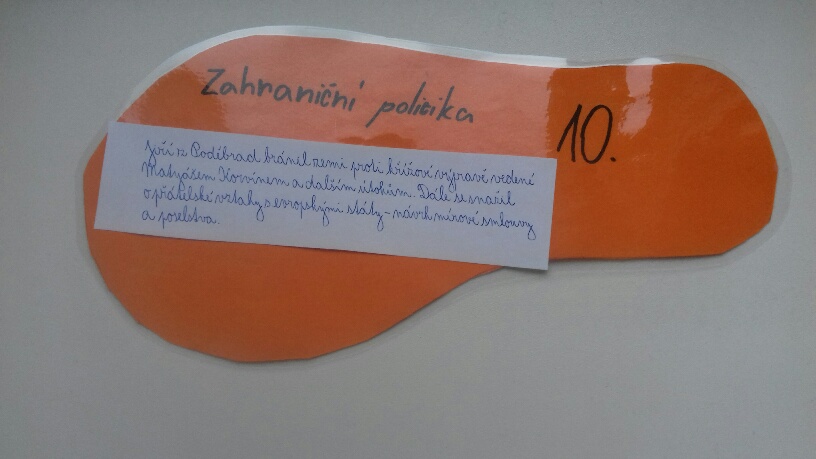 Zahraniční politika
10.
Jiří z Poděbrad bránil zemi proti křížové výpravě vedené
Matyášem Korvínem a dalším útokům. Dále se snažil
o přátelské vztahy s evropskými státy - návrh mírové smlouvy
a poselstva.